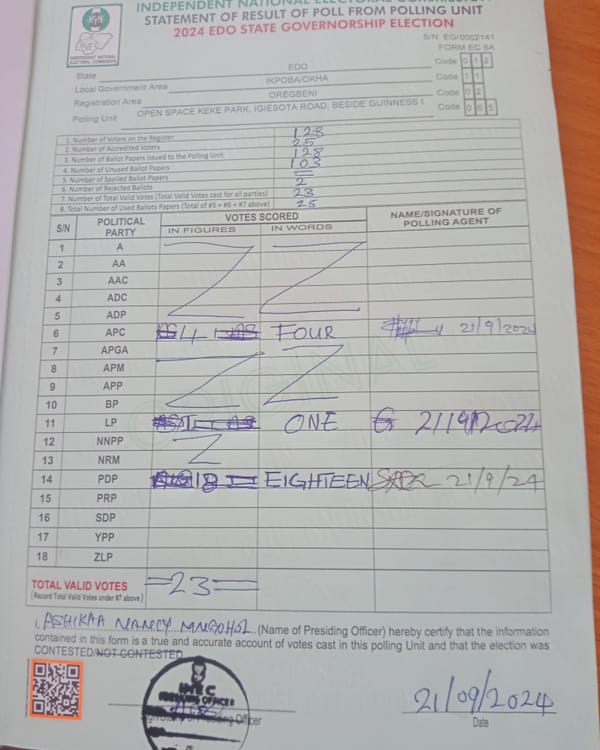 INDEPENDENT NATIONAL ELECTORAL COMMISSION
STATEMENT OF RESULT OF POLL FROM POLLING UNIT
2024 EDO STATE GOVERNORSHIP ELECTION
INEC
INDEPENDENT NATIONAL ELECTORAL COMMISSION
S/N: EG/0002141
FORM EC 8A
State EDO Code 0 1 2
Local Government Area IKPOBA/OKHA Code 1 1
Registration Area OREGBENI Code 0 2
Polling Unit OPEN SPACE KEKE PARK, IGIESOTA ROAD, BESIDE GUINNESS I Code 0 6 5
1. Number of Voters on the Register 128
2. Number of Accredited Voters 25
3. Number of Ballot Papers Issued to the Polling Unit 128
4. Number of Unused Ballot Papers 103
5. Number of Spoiled Ballot Papers =
6. Number of Rejected Ballots 2
7. Number of Total Valid Votes (Total Valid Votes cast for all parties) 23
8. Total Number of Used Ballots Papers (Total of #5 + #6 + #7 above) 25
S/N POLITICAL PARTY VOTES SCORED NAME/SIGNATURE OF POLLING AGENT
IN FIGURES IN WORDS
1 A
2 AA
3 AAC
4 ADC
5 ADP
6 APC 4 FOUR 21/9/2024
7 APGA
8 APM
9 APP
10 BP
11 LP 1 ONE 21/9/2024
12 NNPP
13 NRM
14 PDP 18 EIGHTEEN 21/9/24
15 PRP
16 SDP
17 YPP
18 ZLP
ORIGINAL
TOTAL VALID VOTES =23=
(Record Total Valid Votes under #7 above)
I, ASHIKAA NANCY MNGOHOL (Name of Presiding Officer) hereby certify that the information
contained in this form is a true and accurate account of votes cast in this polling Unit and that the election was
CONTESTED/NOT CONTESTED
INEC
PRESIDING OFFICER
Signature of Presiding Officer
21/09/2024
Date